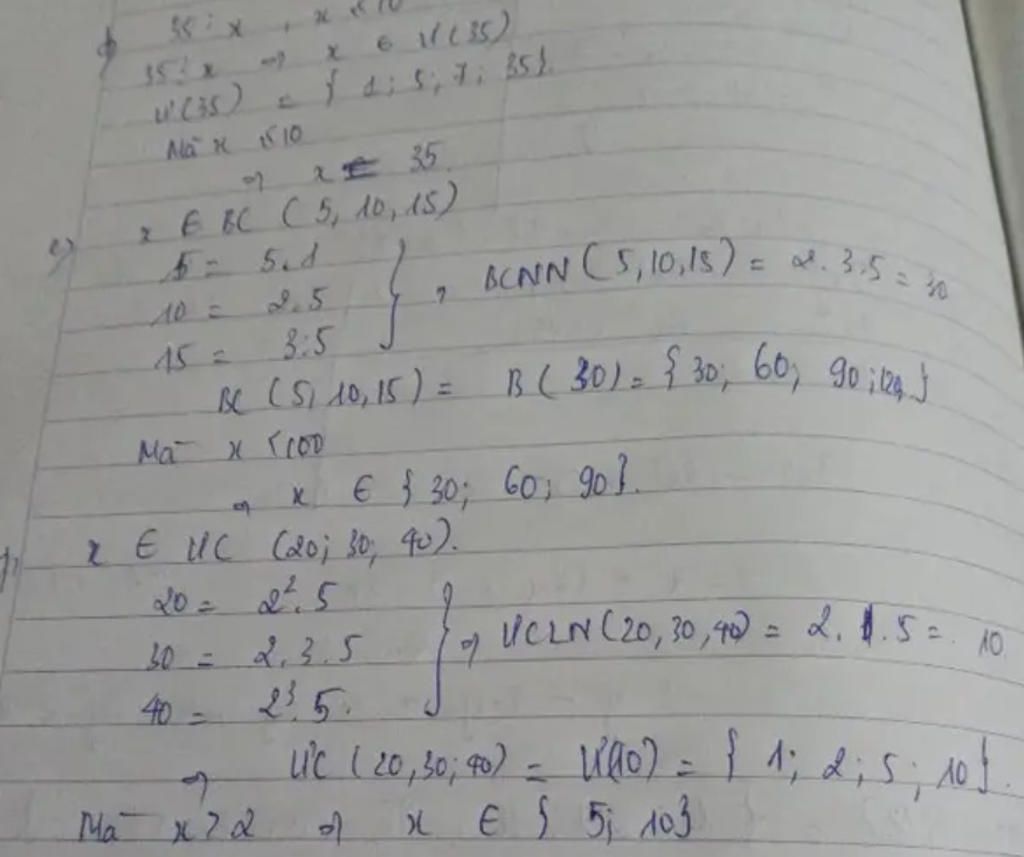 d) 35 ⋮ x , x ≤ 10
35 ⋮ x ⇒ x ∈ Ư(35)
Ư(35) = { 1; 5; 7; 35}.
Mà x ≤ 10
⇒ x = 35.
e) x ∈ BC (5, 10, 15)
5 = 5.1
10 = 2.5
15 = 3.5
} ⇒ BCNN (5, 10, 15) = 2.3.5 = 30
BC (5, 10, 15) = B(30) = { 30; 60; 90; 120 }
Mà x < 100
⇒ x ∈ { 30; 60; 90}.
x ∈ ƯC (20; 30; 40).
20 = 2².5
30 = 2.3.5
40 = 2³.5.
} ⇒ ƯCLN(20, 30, 40) = 2.1.5 = 10.
⇒ ƯC (20, 30; 40) = Ư(10) = { 1; 2; 5; 10}.
Mà x > 2 ⇒ x ∈ { 5; 10}